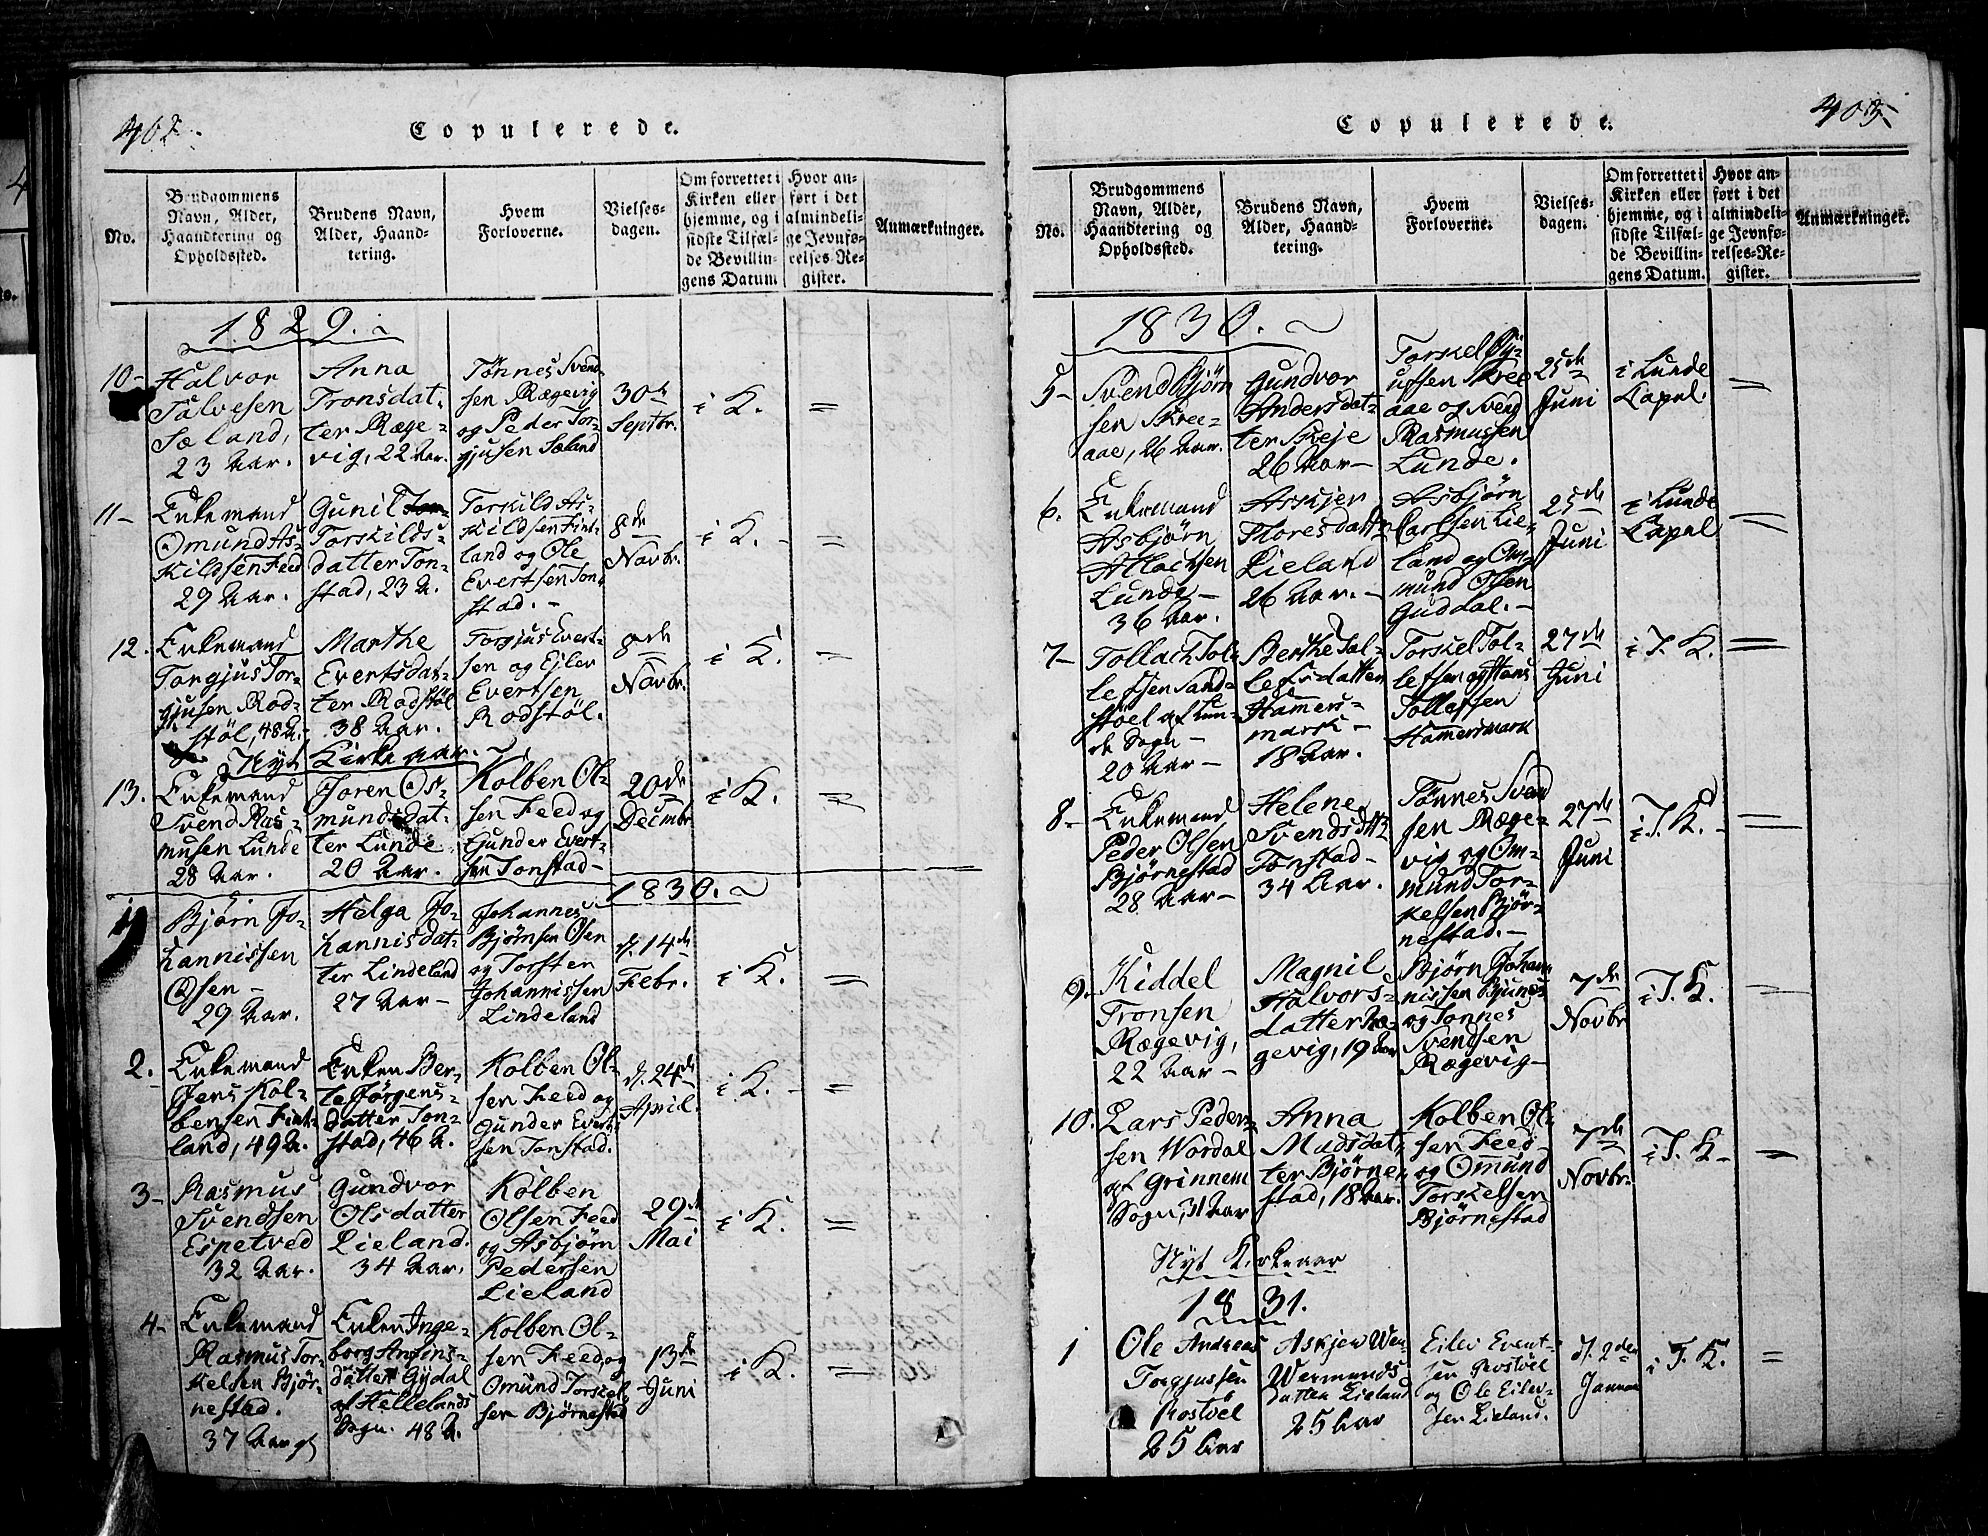 402.
Copulerede.
No.
Brudgommens
Navn, Alder,
Haandtering og
Opholdssted.
Brudens Navn,
Alder, Haand-
tering.
Hvem
Forloverne.
Vielses-
dagen.
Om forrettet i
Kirken eller
hjemme, og i
sidste Tilfæl-
de Bevillin-
gens Datum
Hvor an-
ført i det
almindeli-
ge Jevnfø-
relses-Re-
gister.
Anmærkninger.
1829.
10-
Halvor
Salvesen
Sæland,
23 Aar.
Anna
Tronsdat-
ter Ræge-
vig, 22 Aar.
Tønnes Svend-
sen Rægevig
og Peder Tor-
gjusen Sæland
30te
Septbr.
i K.
=
11-
Enkemand
Omund As-
kildsen Feed
29 Aar.
Gunil
Torskilds-
datter Ton-
stad, 23 A.
Torskild As-
kildsen Fint-
land og Ole
Evertsen Ton-
stad.-
8de
Novbr.
i K.
=
12.
Enkemand
Torgjus Tor-
gjusen Rod-
støl, 48 A.
Marthe
Evertsdat-
ter Rodstøl
38 Aar.
Torgjus Evert-
sen og Ejler
Evertsen
Rodstøl.
8de
Novbr.
i K.
=
Nyt Kirke aar.
13.
Enkemand
Svend Ras-
musen Lunde
28 Aar.
Joren Os-
mundsdat-
ter Lunde
20 Aar.
Kolben Ol-
sen Feed og
Gunder Evert-
sen Tonstad-
20de
Decmbr
i K.
=
1830.
1
Bjørn Jo-
hannissen
Osen-
29 Aar.
Helga Jo-
hannisdat-
ter Lindeland
27 Aar-
Johannes
Bjørnsen Osen
og Torsten
Johannissen
Lindeland
d. 14de
Febr.
i K.
=
2.
Enkemand
Jens Kol-
bensen Fint-
land, 49 A.
Enken Ber-
te Jørgens-
datter Ton-
stad, 46 A.
Kolben Ol-
sen Feed og
Gunder Evert-
sen Tonstad.
d. 24de
April.
i K.-
=
3-
Rasmus
Svendsen
Espetved
32 Aar.
Gundvor
Olsdatter
Lieland.
34 Aar.
Kolben
Olsen Feed
og Asbjørn
Pedersen
Lieland
29de
Mai
i K.
=
4-
Enkemand
Rasmus Tor-
kelsen Bjør-
nestad.
37 Aar
Enken Inge-
borg Anfins-
datter Gydal
af Hellelands
Sogn. 48 A.
Kolben Ol-
sen Feed og
Omund Torskel-
sen Bjørnestad
13de
Juni
i K.
=
403.
Copulerede.
No.
Brudgommens
Navn, Alder,
Haandtering og
Opholdssted.
Brudens Navn,
Alder, Haand-
tering.
Hvem
Forloverne.
Vielses-
dagen.
Om forrettet i
Kirken eller
hjemme, og i
sidste Tilfæl-
de Bevillin-
gens Datum.
Hvor an-
ført i det
almindeli-
ge Jevnfø-
relses-Re-
gister.
Anmærkninger.
1830.
5-
Svend Bjørn
sen Skree-
aae, 26 Aar.
Gundvor
Andersdat-
ter Skeje
26 Aar-
Torskel
Skree
aae og Svend
Rasmussen
Lunde.
25de
Juni
i Lunde
Capel.
=
6.
Enkemand
Asbjørn
Atlachsen
Lunde-
36 Aar.
Askjer
Thoresdatter
Lieland
26 Aar.-
Asbjørn
Carlsen Lie-
land og Om-
mund Olsen
Guddal.-
25de
Juni
i Lunde
Capel
=
7-
Tollach Tol-
lefsen Sand-
støel af Lun-
de Sogn-
20 Aar-
Berthe Tol-
lefsdatter
Hamers-
mark-
18 Aar.
Torskel Tol-
lefsen og Hans
Tollefsen
Hamersmark
27de
Juni
i T. K.
=
8-
Enkemand
Peder Olsen
Bjørnestad
28 Aar-
Helene
Svendsdtr
Tonstad-
34 Aar.
Tønnes Svend
sen Ræge-
vig og Om-
mund Tor-
kelsen Bjør-
nestad.-
27de
Juni
i T. K.-
=
9.
Kiddel
Tronsen
Rægevig,
22 Aar-
Magnil
Halvors-
datter Ræ-
gevig, 19 Aar
Bjørn Johan-
nissen
og Tønnes
Svendsen
Rægevig-
7de
Novbr
i T. K.
=
10.
Lars Peder-
sen Wordal
af Grinnem
Sogn, 31 Aar
Anna
Madsdat-
ter Bjørne-
stad, 18 Aar.
Kolben Ol-
sen Feed
og Omund
Torskelsen
Bjørnestad
7de
Novbr.
i T. K-
=
Nyt Kirkeaar
1831.
1
Ole Andreas
Torgjussen
Rostøel
25 Aar
Askjer
Wermunds
datter Lieland
25 Aar
Eilev Evert-
sen Rostøel
og Ole Eilev-
sen Lieland.
d. 2den
Januar
i T. K.
=